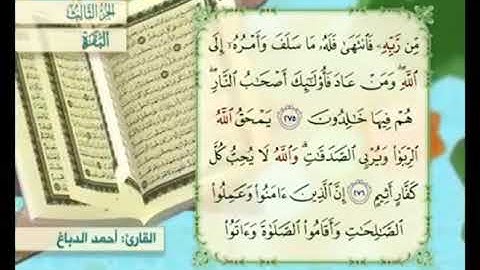 الجزء الثالث
البقرة
مِّن رَّبِّهِۦ فَٱنتَهَىٰ فَلَهُۥ مَا سَلَفَ وَأَمْرُهُۥٓ إِلَى
ٱللَّهِۖ وَمَنْ عَادَ فَأُو۟لَٰٓئِكَ أَصْحَٰبُ ٱلنَّارِۖ
هُمْ فِيهَا خَٰلِدُونَ ٢٧٥ يَمْحَقُ ٱللَّهُ
ٱلرِّبَوٰا۟ وَيُرْبِى ٱلصَّدَقَٰتِۗ وَٱللَّهُ لَا يُحِبُّ كُلَّ
كَفَّارٍ أَثِيمٍ ٢٧٦ إِنَّ ٱلَّذِينَ ءَامَنُوا۟ وَعَمِلُوا۟
ٱلصَّٰلِحَٰتِ وَأَقَامُوا۟ ٱلصَّلَوٰةَ وَءَاتَوُا۟
القارئ: أحمد الدباغ